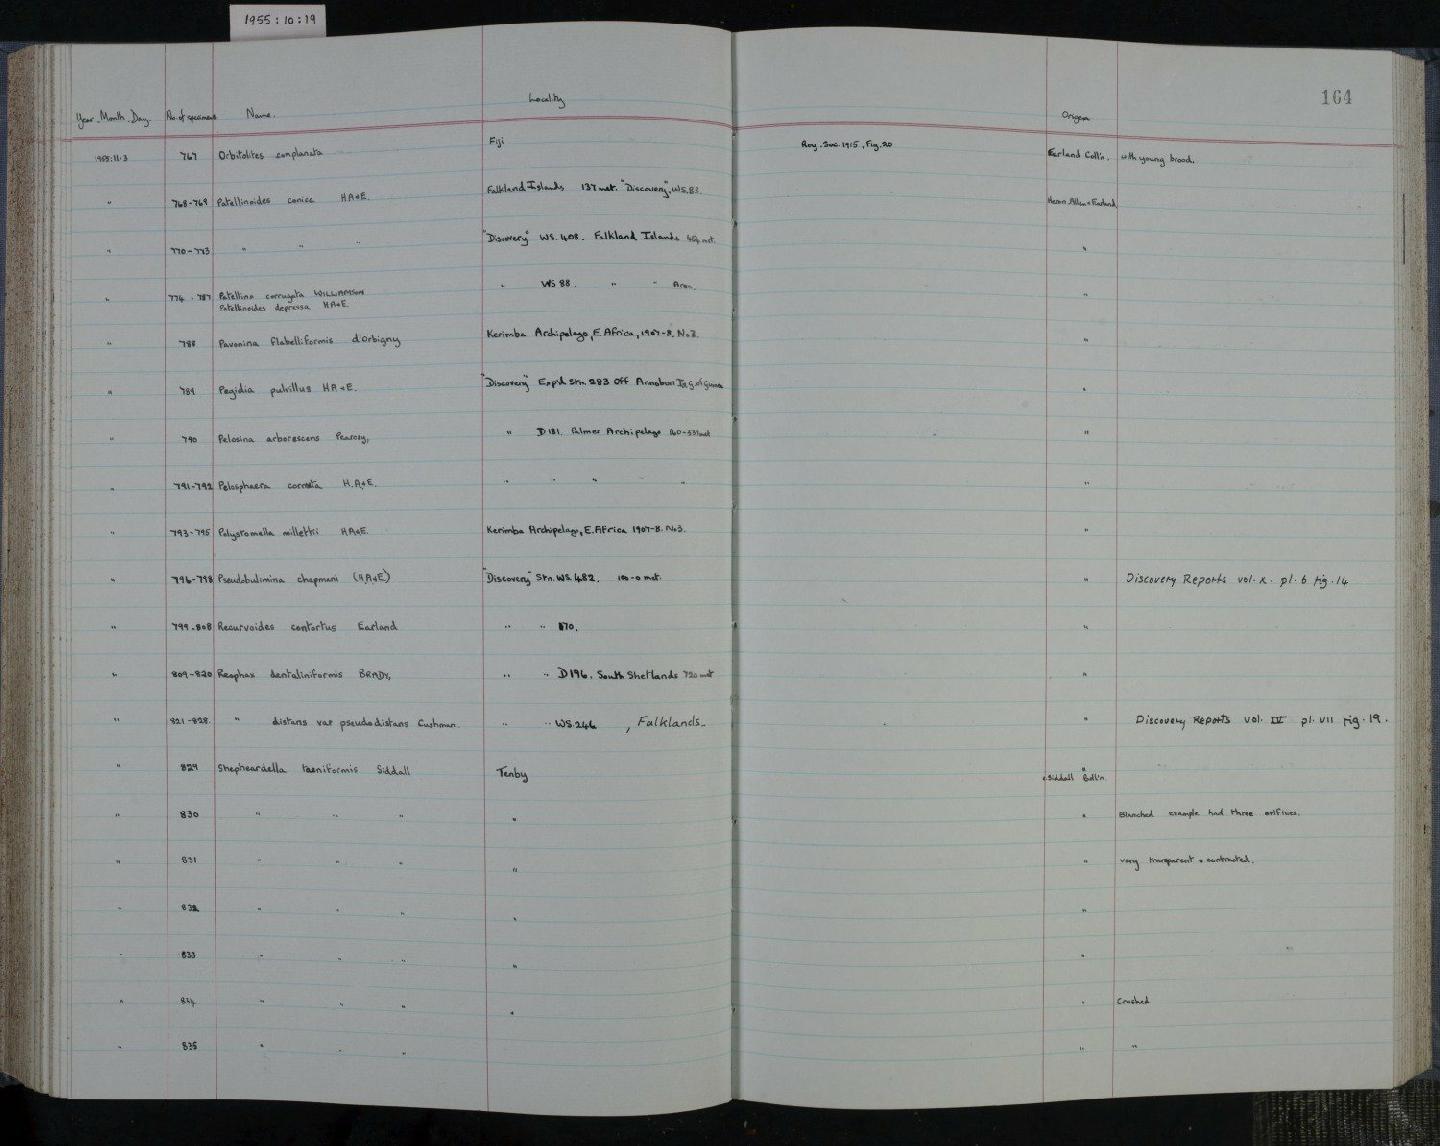 1955:10:19
164
Year. Month. Day. No. of specimens Name. Locality Origin
1955:11.3 767 Orbitolites complanata Fiji Roy. Soc. 1915, Fig. 20 Earland Coll'n. with young brood.
" 768-769 Patellinoides conica H.A&E. Falkland Islands 137 met. "Discovery". WS.83. Heron-Allen & Earland
" 770-773 " " " "Discovery" WS. 408. Falkland Islands met. "
" 774-787 Patellina corrugata WILLIAMSON " WS 88. " " "
Patellinoides depressa HA&E.
" 788 Pavonina flabelliformis d'Orbigny Kerimba Archipelago, E. Africa, 1907-8. No3. "
" 789 Pegidia HA&E. "Discovery" Exp'd Stn. 283 Off Annobon I. G. of Guinea "
" 790 Pelosina arborescens Pearcey, " D 181. Palmer Archipelago 160-335 met "
" 791-792 Pelosphaera cornuta H.A&E. " " " " "
" 793-795 Polystomella millettii HA&E. Kerimba Archipelago, E. Africa 1907-8. No3. "
" 796-798 Pseudobulimina chapmani (H.A&E) "Discovery" Stn. WS. 482. 100-0 met. " Discovery Reports vol. X. pl. 6 fig. 14
" 799-808 Recurvoides contortus Earland " " 170. "
" 809-820 Reophax dentaliniformis BRADY, " " D196. South Shetlands 720 met "
" 821-828. " distans var pseudodistans Cushman. " " WS.246 , Falklands. " Discovery Reports vol. IV pl. VII fig. 19.
" 829 Shepheardella taeniformis Siddall Tenby "
Siddall Coll'n.
" 830 " " " " " Blanched example had three orifices.
" 831 " " " " " very transparent & contracted.
" 832 " " " " "
" 833 " " " " "
" 834 " " " " " Crushed
" 835 " " " " "